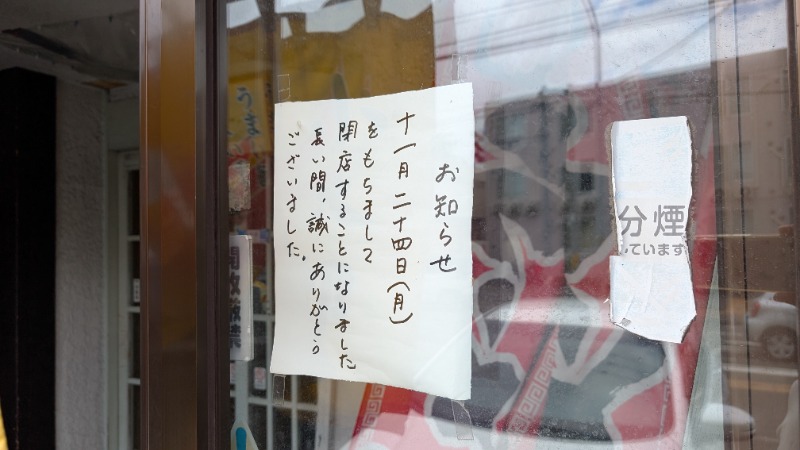 お知らせ
十一月二十四日(月)
をもちまして
閉店することになりました
長い間、誠にありがとう
ございました。
分煙
ています
うま
開放厳禁